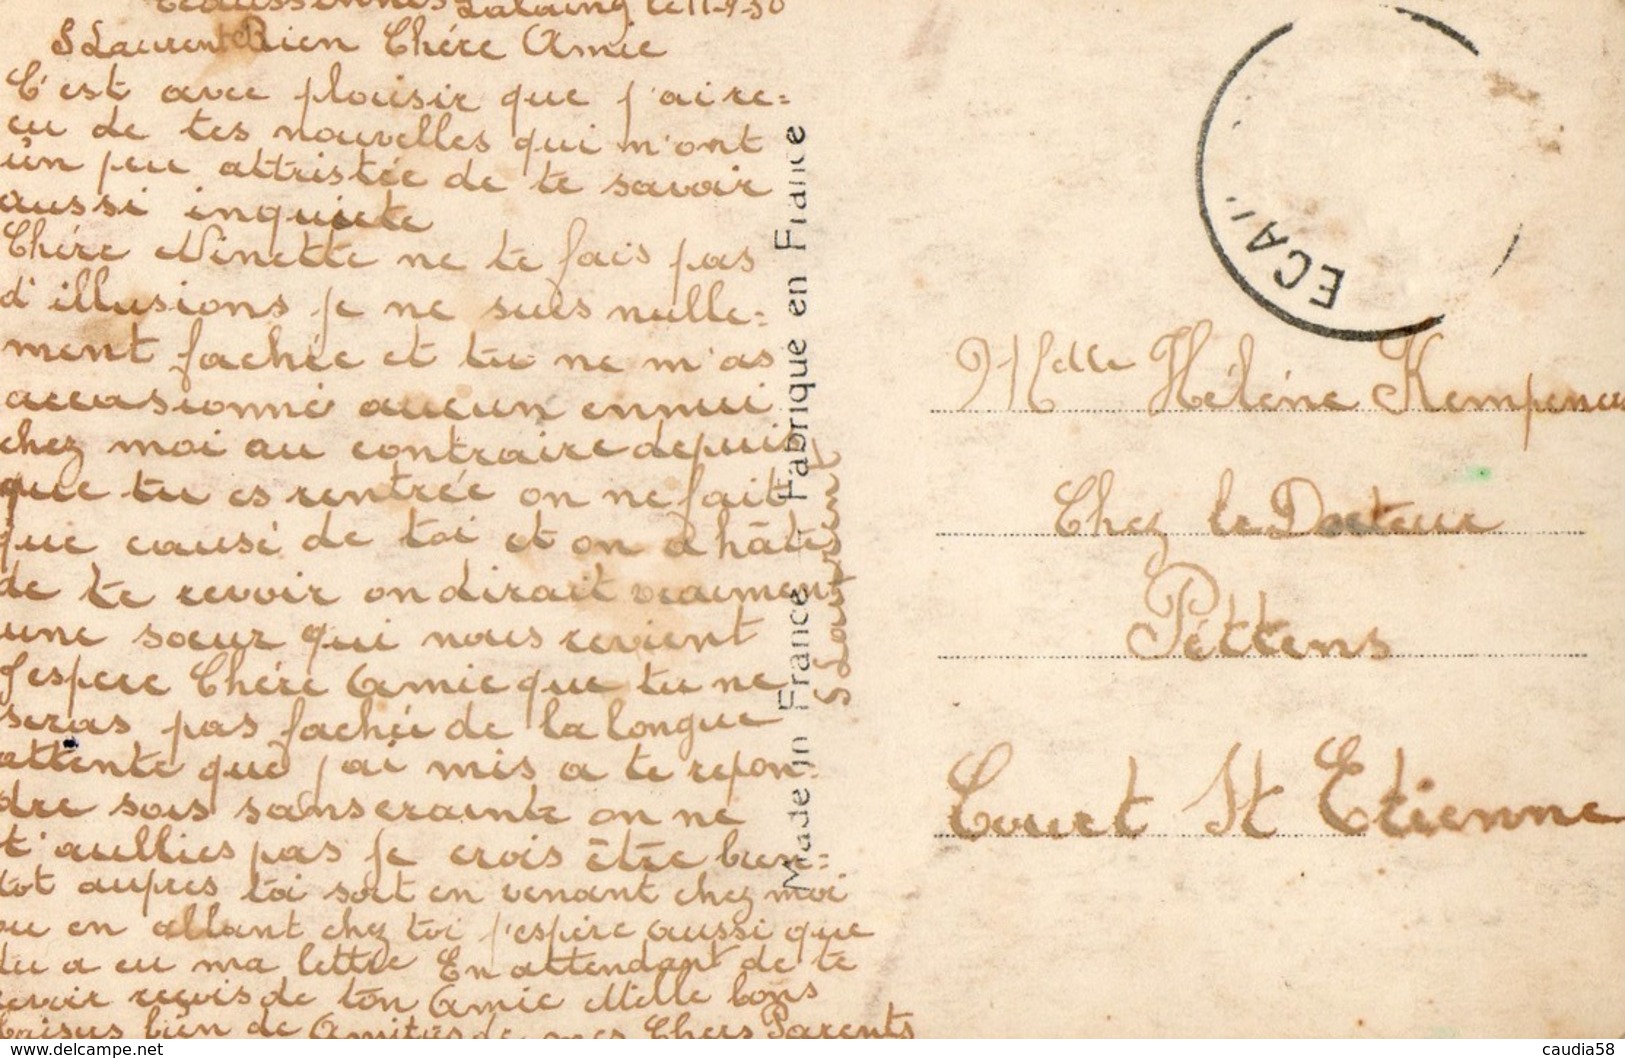 Ecaussinnes Lalaing le 11-9-30
S Laurent Bien Chére Amie
C'est avec plaisir que j'aire=
cu de tes nouvelles qui m'ont
un peu attristée de te savoir
aussi inquiete
Chére Ninette ne te fais pas
d'illusions je ne suis nulle=
ment fachée et tu ne m'as
accasionné aucun ennui
chez moi au contraire depuis
que tu es rentrée on ne fait
que causé de toi et on a hâte
de te revoir on dirait vraiment
une soeur qui nous revient
J'espere Chére Amie que tu ne
seras pas fachée de la longue
attente que j'ai mis a te repon-
dre sois sans crainte on ne
t'oullies pas je crois êtêe bien=
tot aupres toi soit en venant chez moi
ou en allant chez toi j'espére aussi que
tu a eu ma lettre En attendant de te
revoir reçois de ton Amie Mille bons
baisers bien de Amitiés de mes Chers Parents
S Laurent
Made in France Fabrique en France
ECAU
Mdelle Hélène Kempene
Chez le Docteur
Pèttens
Court St Etienne
delcampe.net
caudia58